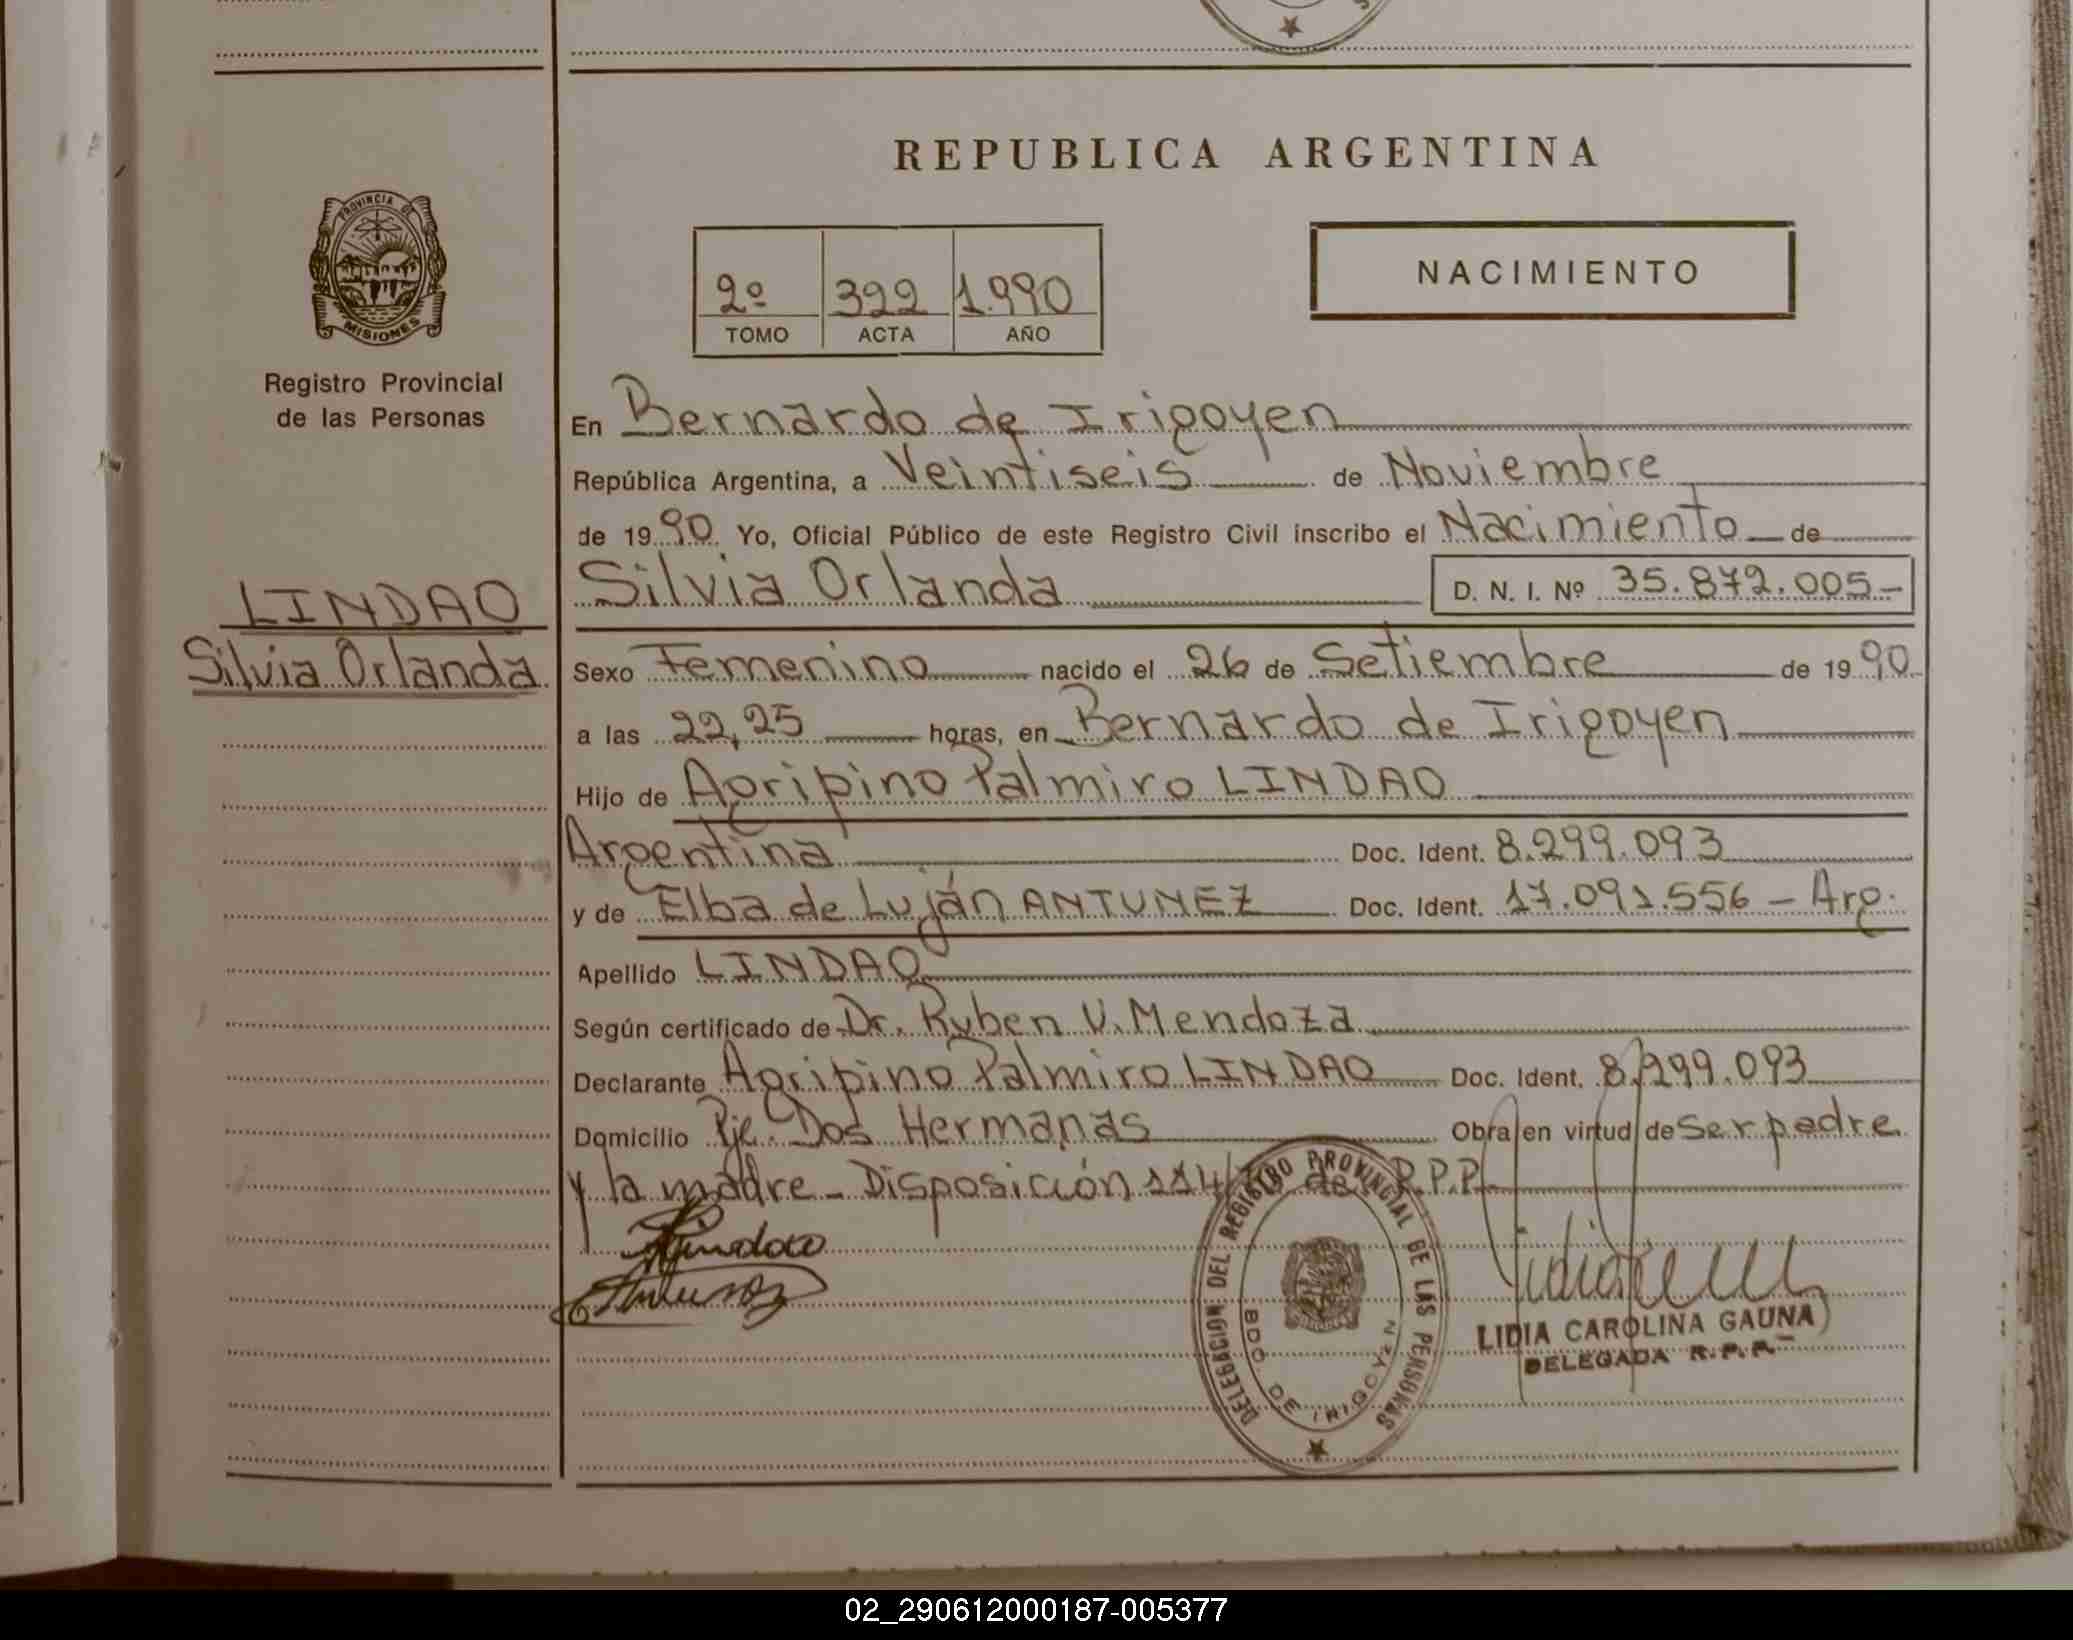 REPUBLICA ARGENTINA
PROVINCIA DE
MISIONES
Registro Provincial
de las Personas
2º 322 1.990
TOMO ACTA AÑO
NACIMIENTO
En Bernardo de Irigoyen
República Argentina, a Veintiseis de Noviembre
de 1990 Yo, Oficial Público de este Registro Civil inscribo el Nacimiento de
Silvia Orlanda D. N. I. Nº 35.872.005-
LINDAO
Silvia Orlanda
Sexo Femenino nacido el 26 de Setiembre de 1990
a las 22,25 horas, en Bernardo de Irigoyen
Hijo de Agripino Palmiro LINDAO
Argentina Doc. Ident. 8.299.093
y de Elba de Luján ANTUNEZ Doc. Ident. 17.091.556 - Arg.
Apellido LINDAO
Según certificado de Dr. Ruben V. Mendoza
Declarante Agripino Palmiro LINDAO Doc. Ident. 8.299.093
Domicilio Pje. Dos Hermanas Obra en virtud de ser padre
y la madre - Disposición 114/ de R.P.P.
Lindao
Antunez
DELEGACION DEL REGISTRO PROVINCIAL DE LAS PERSONAS
BDO. DE IRIGOYEN
LIDIA CAROLINA GAUNA
DELEGADA R.P.P.
02_290612000187-005377